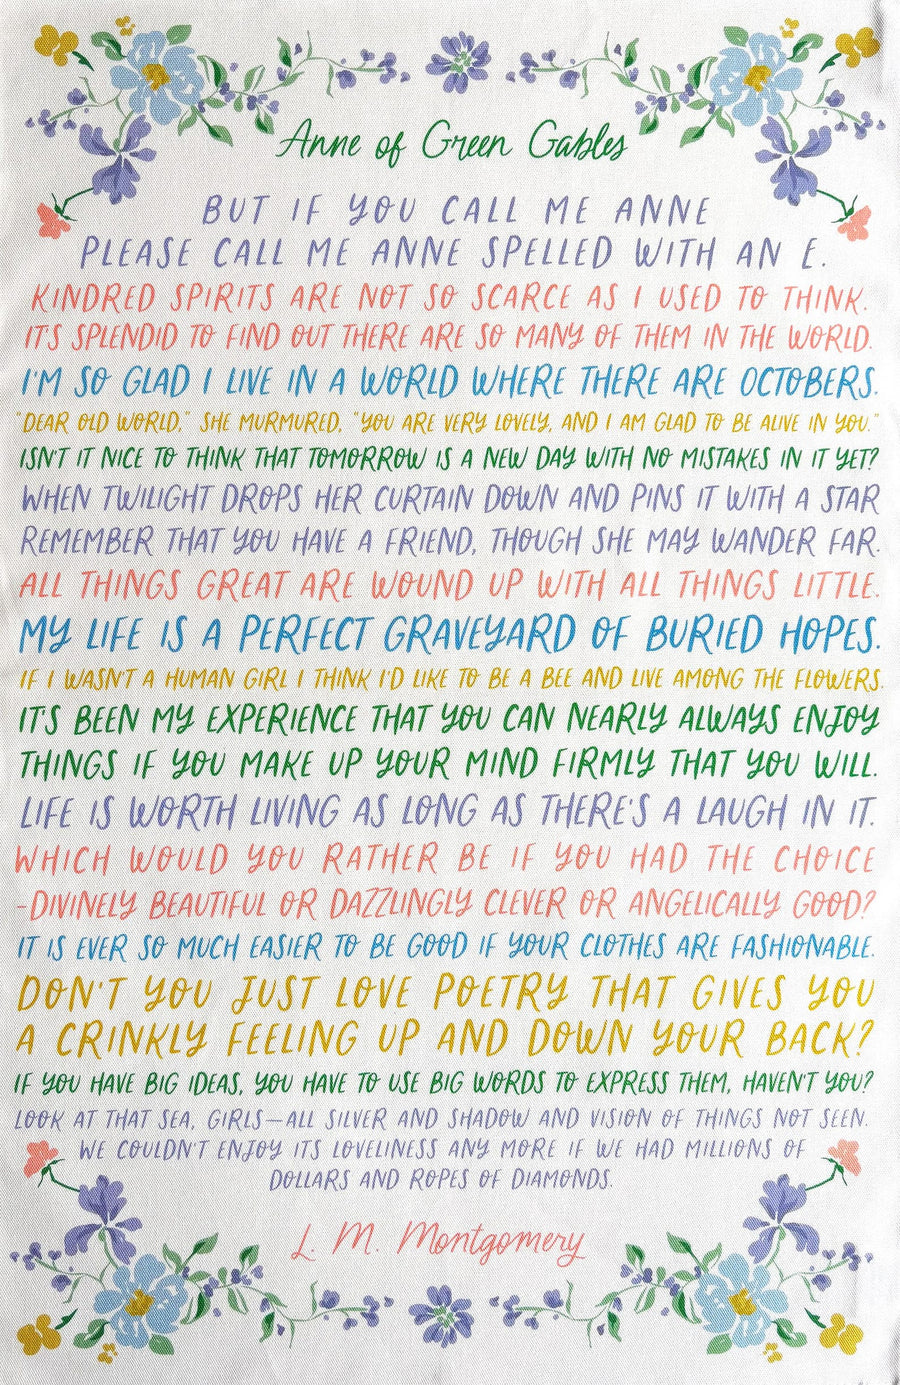 Anne of Green Gables
BUT IF YOU CALL ME ANNE
PLEASE CALL ME ANNE SPELLED WITH AN E.
KINDRED SPIRITS ARE NOT SO SCARCE AS I USED TO THINK.
IT'S SPLENDID TO FIND OUT THERE ARE SO MANY OF THEM IN THE WORLD.
I'M SO GLAD I LIVE IN A WORLD WHERE THERE ARE OCTOBERS.
"DEAR OLD WORLD," SHE MURMURED, "YOU ARE VERY LOVELY, AND I AM GLAD TO BE ALIVE IN YOU."
ISN'T IT NICE TO THINK THAT TOMORROW IS A NEW DAY WITH NO MISTAKES IN IT YET?
WHEN TWILIGHT DROPS HER CURTAIN DOWN AND PINS IT WITH A STAR
REMEMBER THAT YOU HAVE A FRIEND, THOUGH SHE MAY WANDER FAR.
ALL THINGS GREAT ARE WOUND UP WITH ALL THINGS LITTLE.
MY LIFE IS A PERFECT GRAVEYARD OF BURIED HOPES.
IF I WASN'T A HUMAN GIRL I THINK I'D LIKE TO BE A BEE AND LIVE AMONG THE FLOWERS.
IT'S BEEN MY EXPERIENCE THAT YOU CAN NEARLY ALWAYS ENJOY
THINGS IF YOU MAKE UP YOUR MIND FIRMLY THAT YOU WILL.
LIFE IS WORTH LIVING AS LONG AS THERE'S A LAUGH IN IT.
WHICH WOULD YOU RATHER BE IF YOU HAD THE CHOICE
-DIVINELY BEAUTIFUL OR DAZZLINGLY CLEVER OR ANGELICALLY GOOD?
IT IS EVER SO MUCH EASIER TO BE GOOD IF YOUR CLOTHES ARE FASHIONABLE.
DON'T YOU JUST LOVE POETRY THAT GIVES YOU
A CRINKLY FEELING UP AND DOWN YOUR BACK?
IF YOU HAVE BIG IDEAS, YOU HAVE TO USE BIG WORDS TO EXPRESS THEM, HAVEN'T YOU?
LOOK AT THAT SEA, GIRLS—ALL SILVER AND SHADOW AND VISION OF THINGS NOT SEEN.
WE COULDN'T ENJOY ITS LOVELINESS ANY MORE IF WE HAD MILLIONS OF
DOLLARS AND ROPES OF DIAMONDS.
L. M. Montgomery